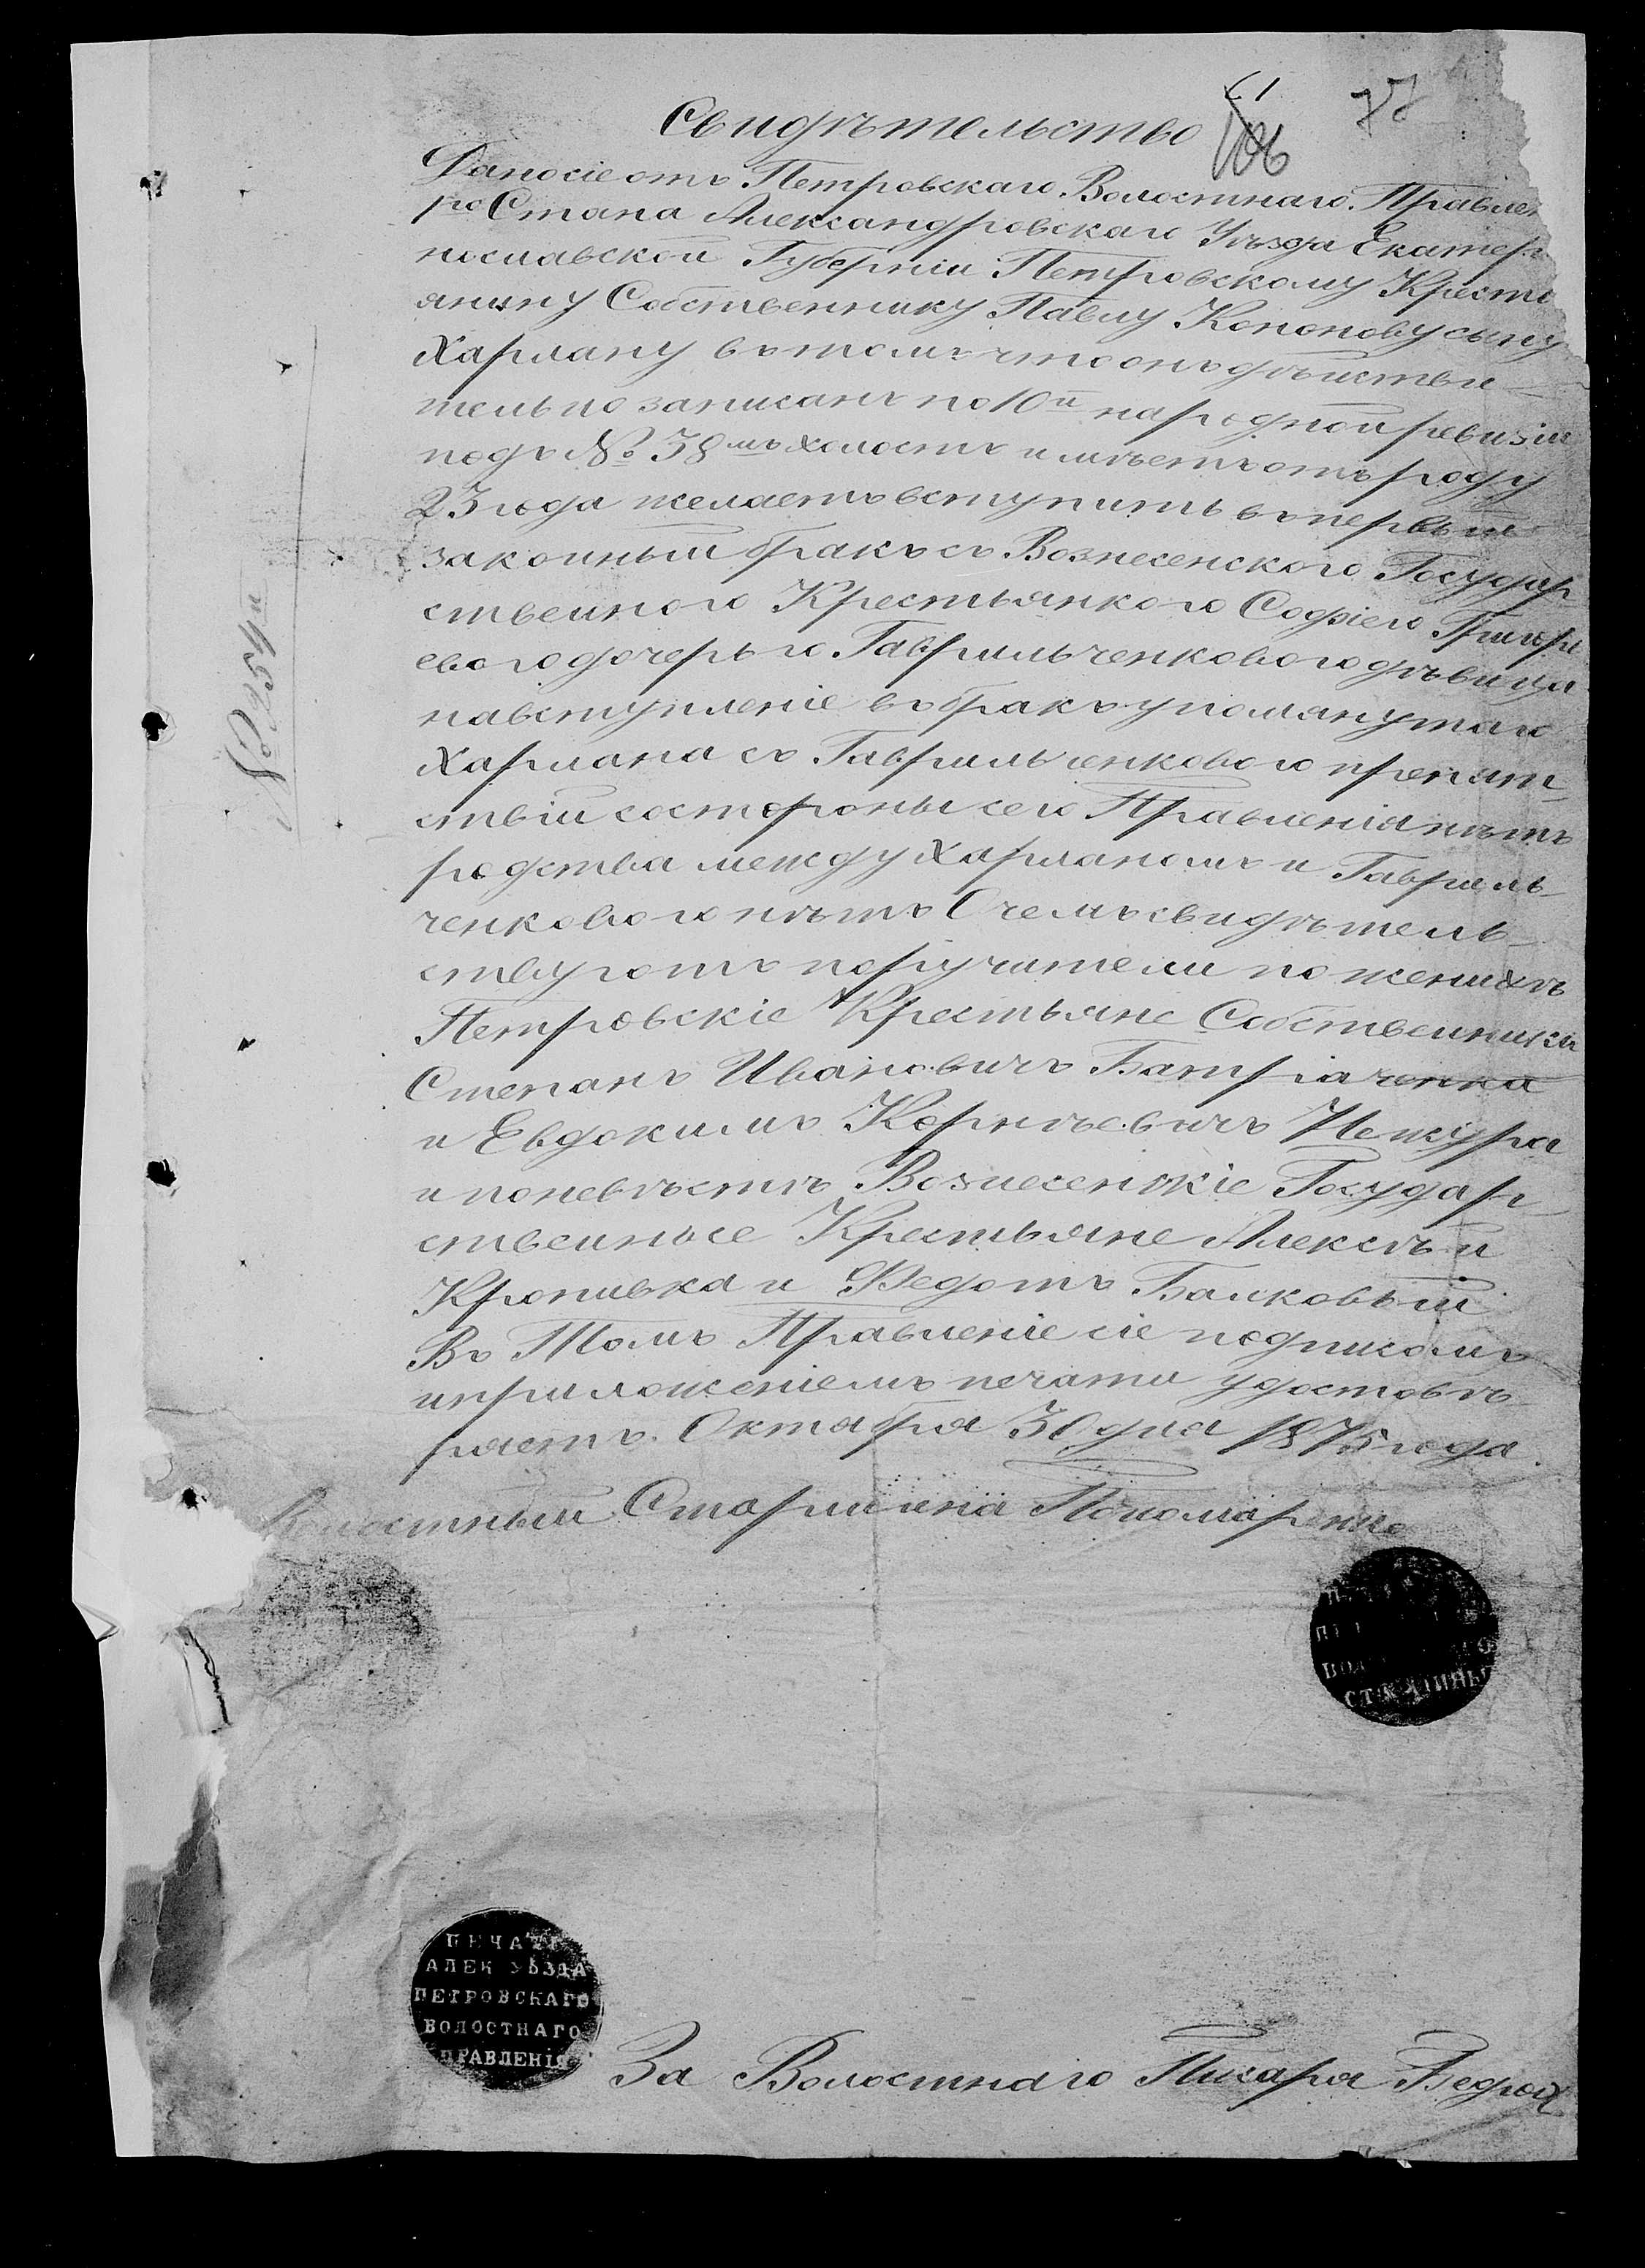 61 77
Свидѣтельство 106
Дано сіе отъ Петровскаго Волостнаго Правлен
го Стана Александровскаго Уѣзда Екатер
нославской Губерніи Петровскому Кресть
янину Собственнику Павлу Кононову сыну
Харлану въ томъ что онъ дѣистви
тельно записанъ по 10й народной ревизіи
подъ № 38мъ холостъ и имѣетъ отъ роду
23 года желаетъ вступить въ первый
законный бракъ съ Вознесенского Государ
ственного Крестьянкого Софіею Григорь
евою дочерью Гаврильченковою дѣвица
навступленіе въ бракъ упомянутаго
Харлана съ Гаврильченковою препят
ствій состороны сего Правленія нѣтъ
родства между Харланомъ и Гавриль
ченковою нѣтъ О чемъ свидѣтель
ствуютъ поручители по женихѣ
Петровскіе Крестьяне Собственники
Степанъ Ивановичъ Батраченка
и Евдокимъ Корнѣевичъ Нежура
и поневѣстѣ Вознесенскіе Государ
ственные Крестьяне Алексѣй
Кропивка и Федотъ Балковый
Въ Томъ Правленіе сіе подписомъ
и приложеніемъ печати удостовѣ
ряетъ. Октября 30 дня 1875 года.
Волостный Старшина Пономаренко
№ 954й
ВОЛ
СТАРШИНЫ
ПЕЧАТЬ
АЛЕК УѢЗДА
ПЕТРОВСКАГО
ВОЛОСТНАГО
ПРАВЛЕНІЯ
За Волостнаго Писаря